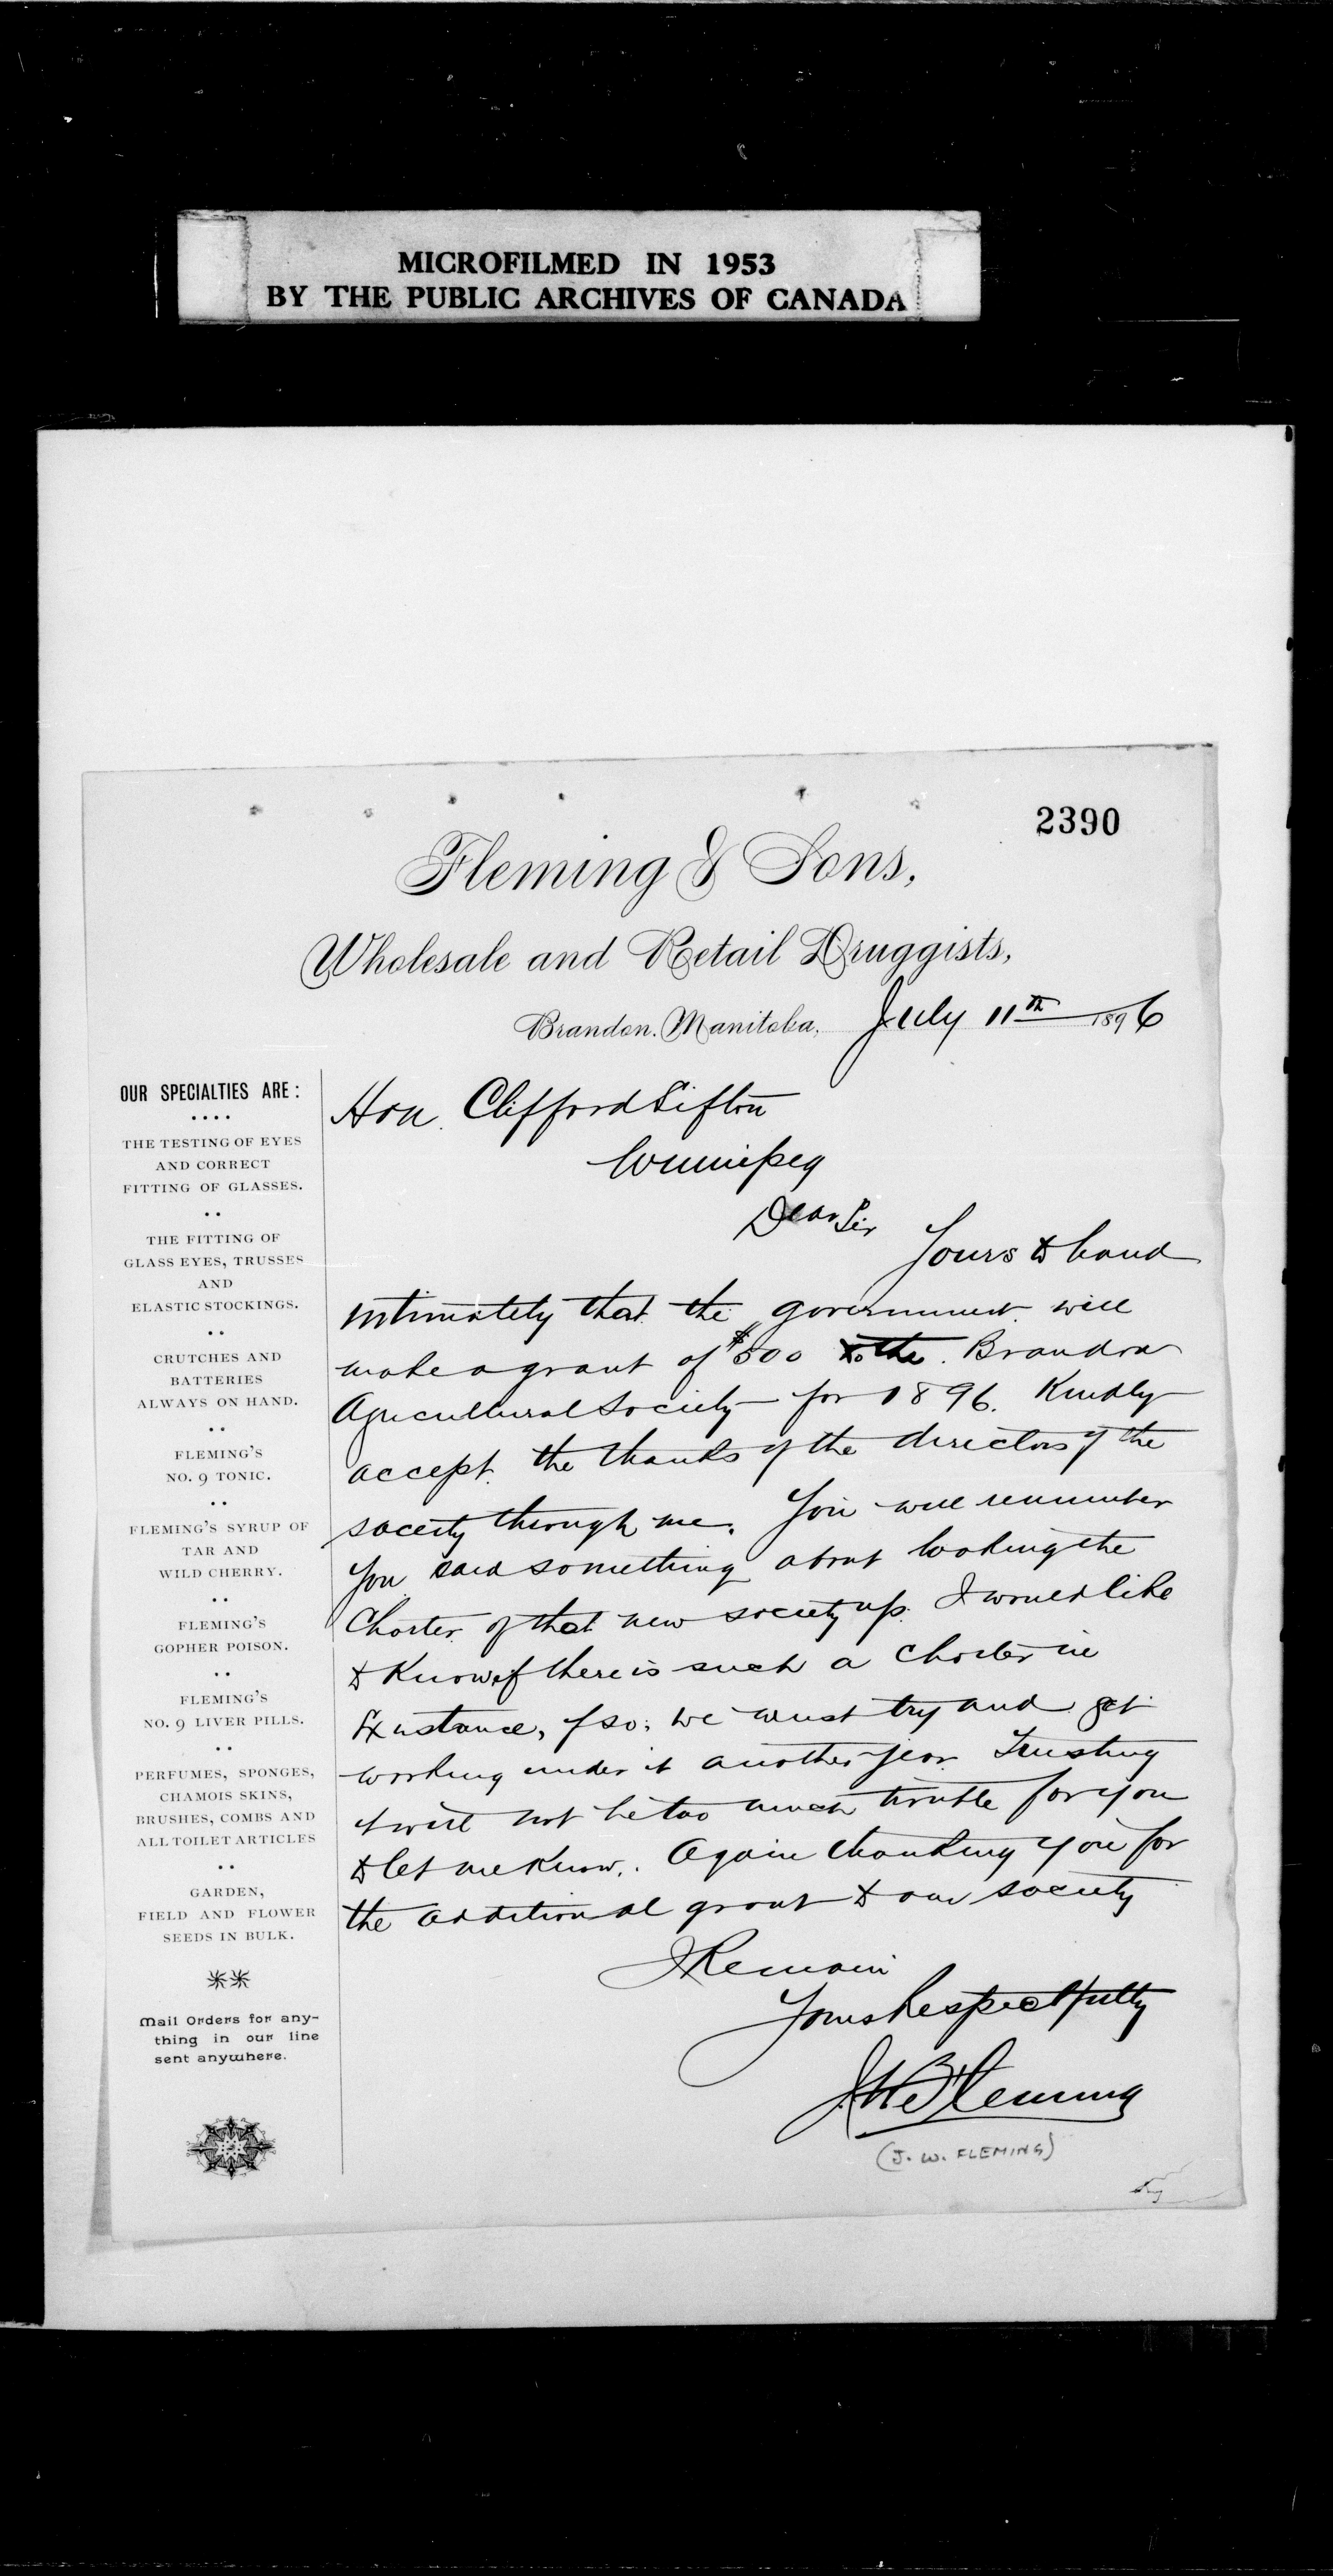 MICROFILMED IN 1953
BY THE PUBLIC ARCHIVES OF CANADA
2390
Fleming & Sons,
Wholesale and Retail Druggists,
Brandon, Manitoba, July 11th 1896
OUR SPECIALTIES ARE:
THE TESTING OF EYES
AND CORRECT
FITTING OF GLASSES.
THE FITTING OF
GLASS EYES, TRUSSES
AND
ELASTIC STOCKINGS.
CRUTCHES AND
BATTERIES
ALWAYS ON HAND.
FLEMING'S
NO. 9 TONIC.
FLEMING'S SYRUP OF
TAR AND
WILD CHERRY.
FLEMING'S
GOPHER POISON.
FLEMING'S
NO. 9 LIVER PILLS.
PERFUMES, SPONGES,
CHAMOIS SKINS,
BRUSHES, COMBS AND
ALL TOILET ARTICLES
GARDEN,
FIELD AND FLOWER
SEEDS IN BULK.
Mail Orders for any-
thing in our line
sent anywhere.
Hon. Clifford Sifton
Winnipeg
Dear Sir
Yours to hand
intimately that the government will
make a grant of $500 to the Brandon
Agricultural Society for 1896. Kindly
accept the thanks of the directors of the
society through me. You will remember
you said something about looking the
Charter of that new society up. I would like
to Know if there is such a Charter in
Existance, if so, we must try and get
working under it another year. Trusting
it will not be too much trouble for you
to let me Know. Again thanking you for
the additional grant to our society
I Remain
Yours Respectfully
J.W. Fleming
(J. W. FLEMING)